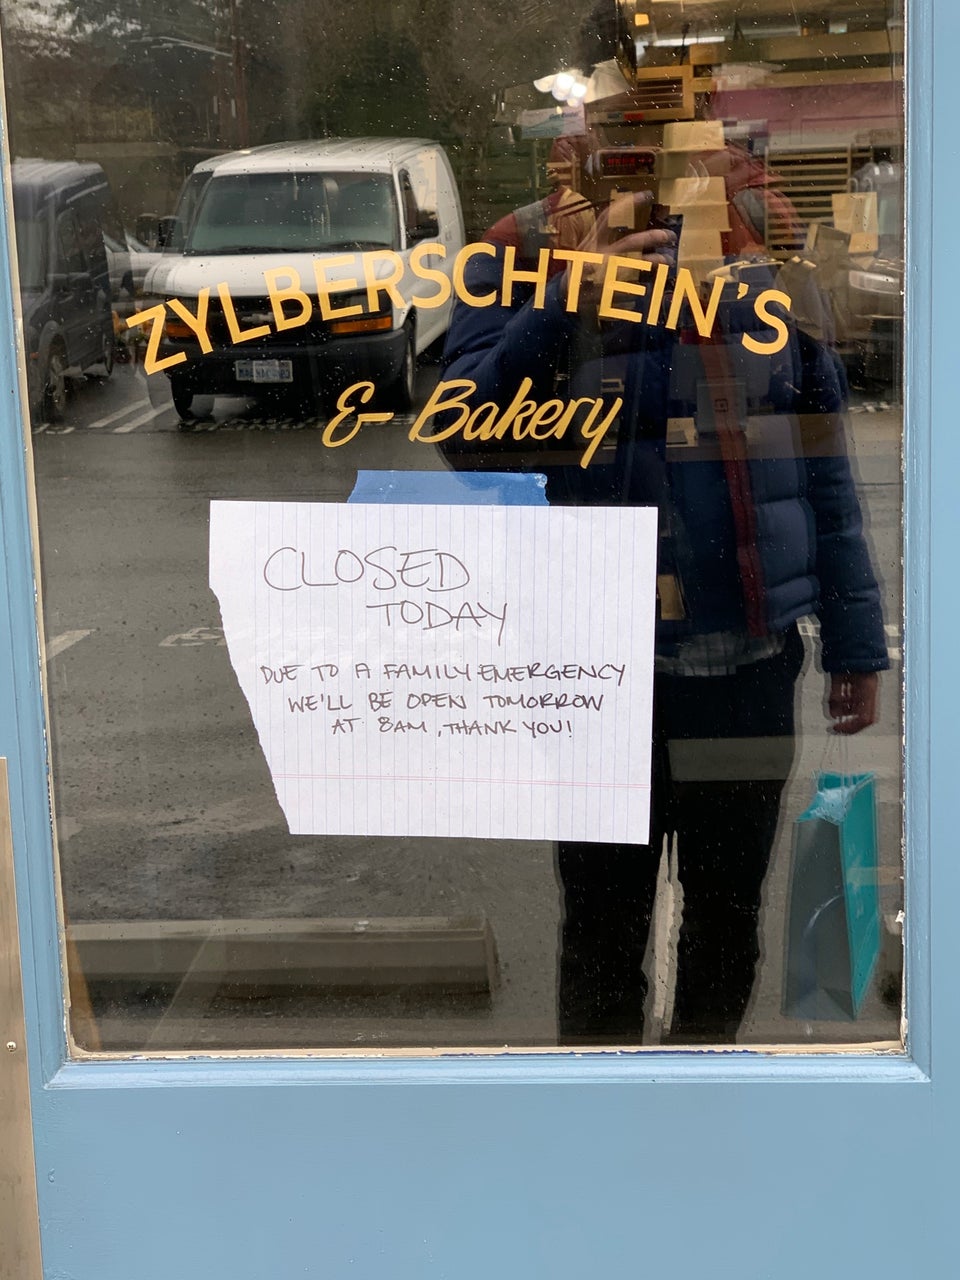 ZYLBERSCHTEIN'S
& Bakery
CLOSED
TODAY
DUE TO A FAMILY EMERGENCY
WE'LL BE OPEN TOMORROW
AT 8AM, THANK YOU!